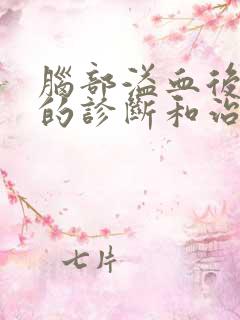 腦部溢血後
的診斷和治
七片